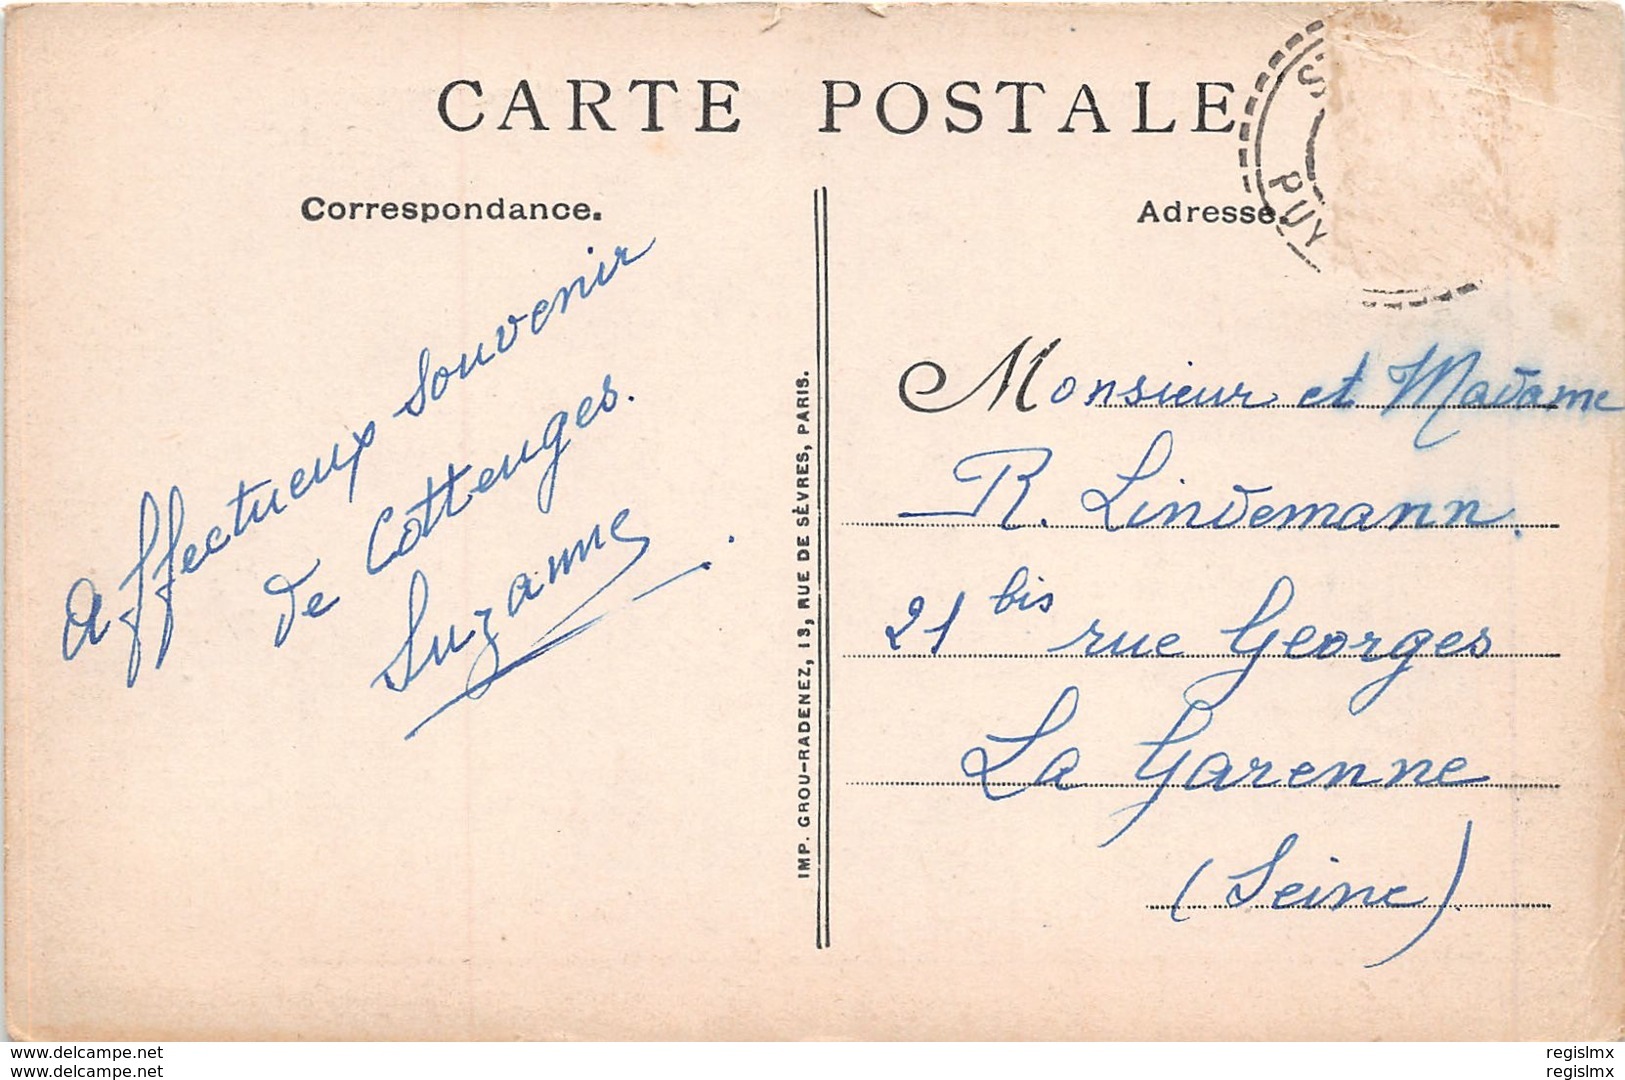 CARTE POSTALE
Correspondance.
Adresse.
PUY
Affectueux souvenir
de Cottenges.
Suzanne.
IMP. GROU-RADENEZ, 13, RUE DE SÈVRES, PARIS.
Monsieur et Madame
R. Lindemann.
21 bis rue Georges
La Garenne
(Seine)
www.delcampe.net
www.delcampe.net
regislmx
regislmx